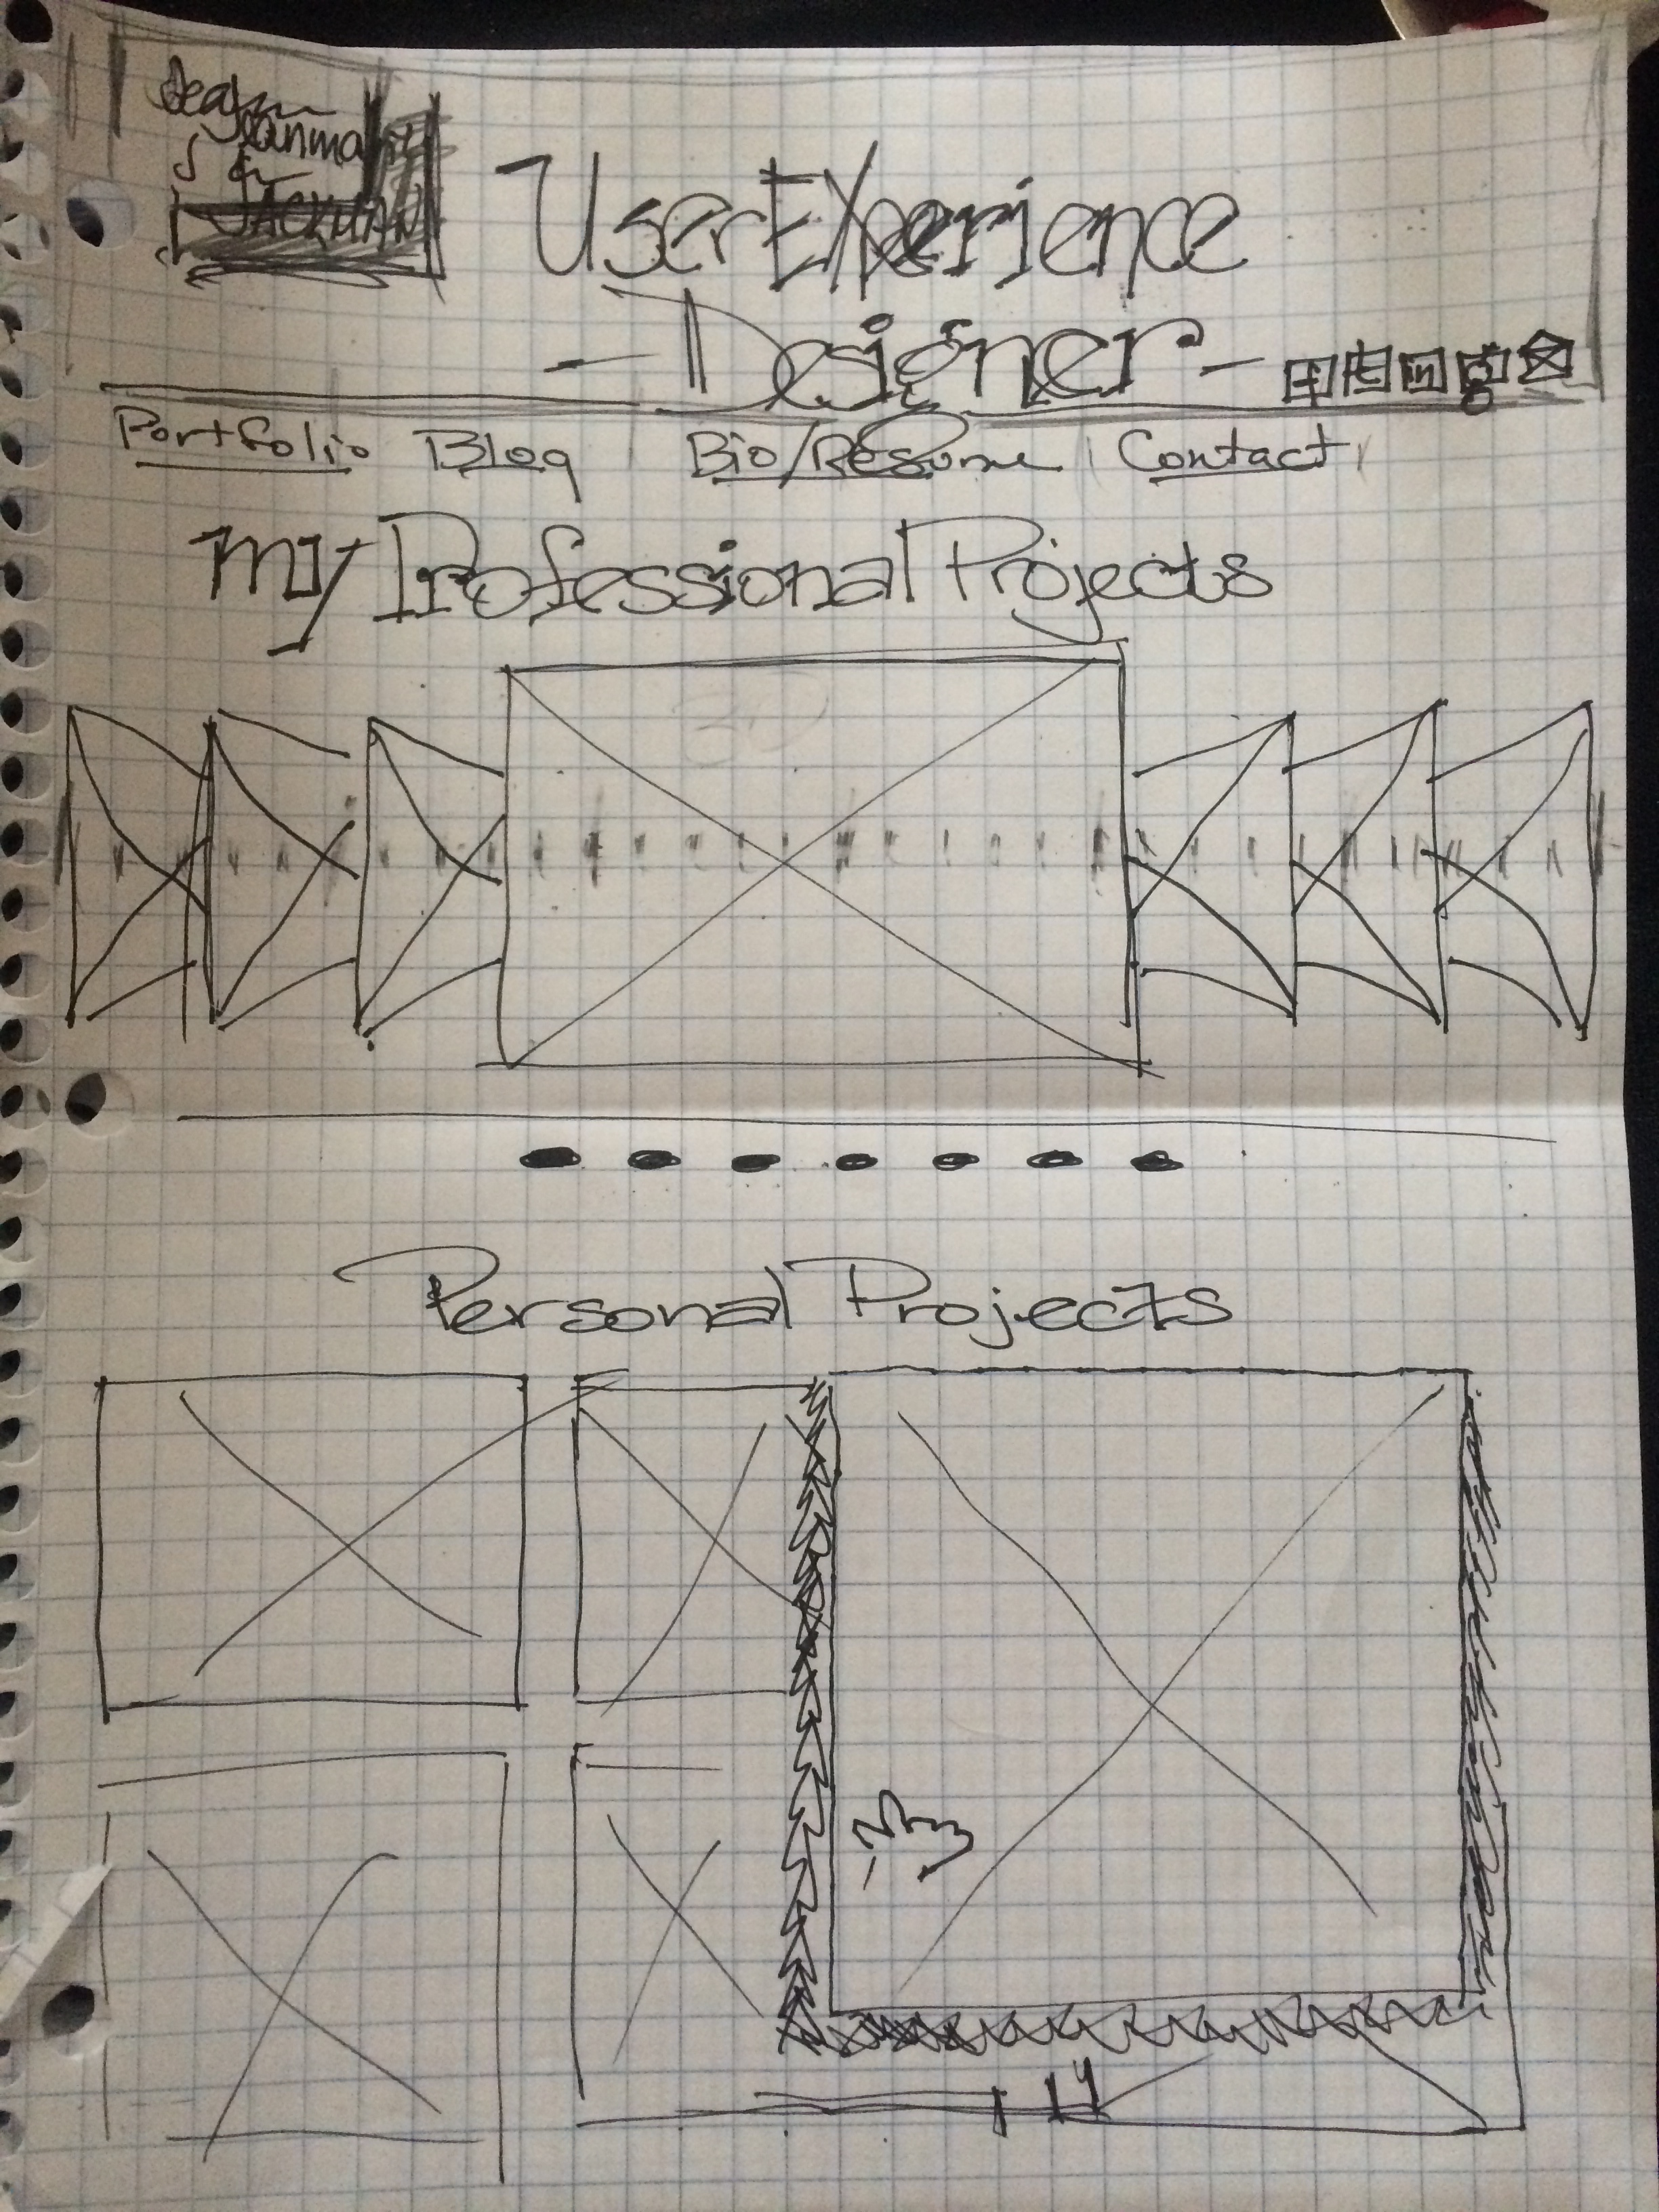 JACKMAN
User Experience
- Designer -
f t in g
Portfolio Blog Bio/Resume | Contact
My Professional Projects
Personal Projects